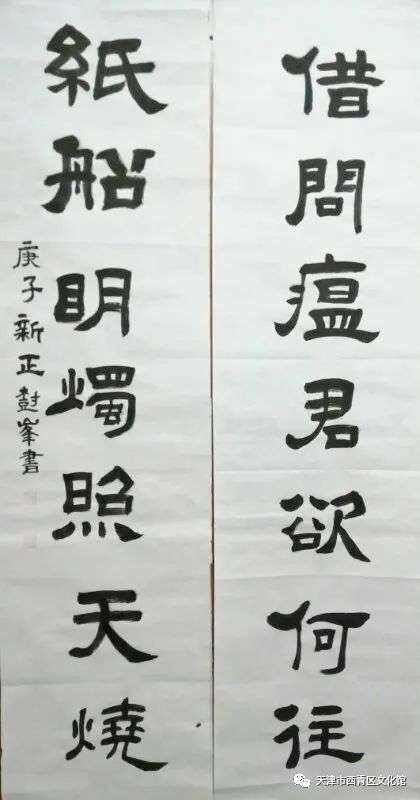 借問瘟君欲何往
紙船明燭照天燒
庚子新正彭峯書
天津市西青区文化馆